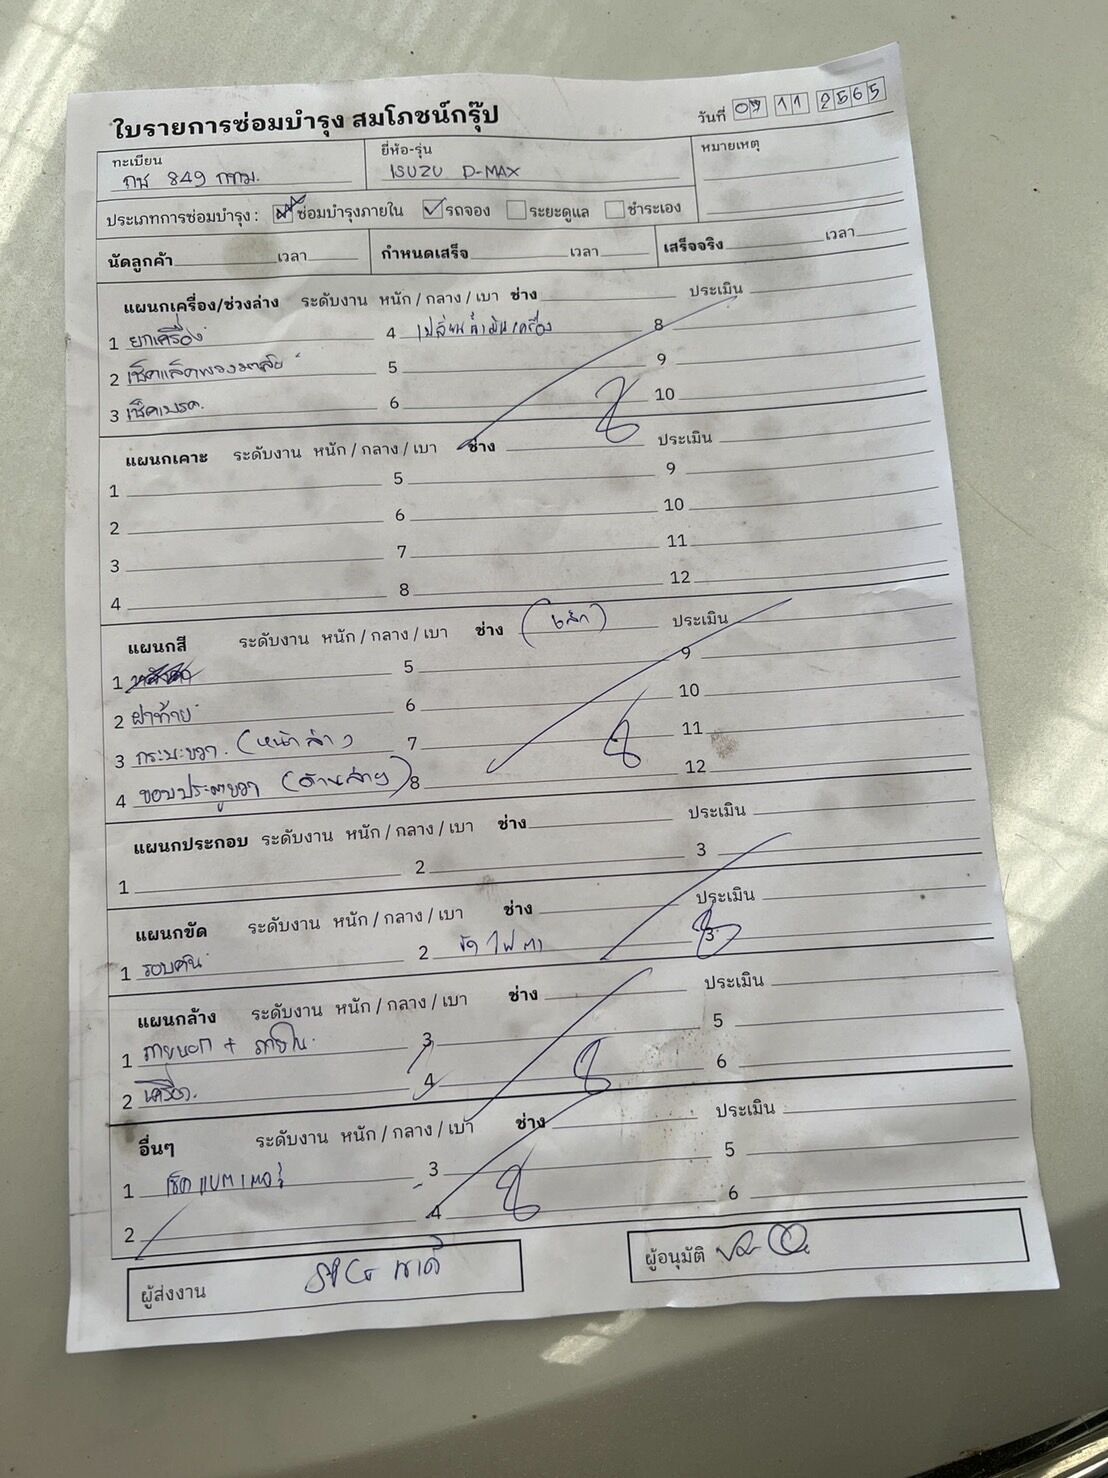 ใบรายการซ่อมบำรุง สมโภชน์กรุ๊ป
วันที่ 11 2565
ทะเบียน ยี่ห้อ-รุ่น หมายเหตุ
849 กทม. ISUZU D-MAX
ประเภทการซ่อมบำรุง : ซ่อมบำรุงภายใน รถจอง ระยะดูแล ชำระเอง
นัดลูกค้า เวลา กำหนดเสร็จ เวลา เสร็จจริง เวลา
แผนกเครื่อง/ช่วงล่าง ระดับงาน หนัก / กลาง / เบา ช่าง ประเมิน
1 ยกเครื่อง 4 เปลี่ยนน้ำมันเครื่อง 8
2 เช็คแร็คพวงมาลัย 5 9
3 เช็คเบรค. 6 10
แผนกเคาะ ระดับงาน หนัก / กลาง / เบา ช่าง ประเมิน
1 5 9
2 6 10
3 7 11
4 8 12
แผนกสี ระดับงาน หนัก / กลาง / เบา ช่าง ประเมิน
1 5 9
2 ฝาท้าย 6 10
3 กระบะขวา. 7 11
4 ขอบประตูขวา (ด้านล่าง) 8 12
แผนกประกอบ ระดับงาน หนัก / กลาง / เบา ช่าง ประเมิน
1 2 3
แผนกขัด ระดับงาน หนัก / กลาง / เบา ช่าง ประเมิน
1 รอบคัน 2 ขัดไฟตา 3
แผนกล้าง ระดับงาน หนัก / กลาง / เบา ช่าง ประเมิน
1 ภายนอก + ภายใน 3 5
2 เครื่อง. 4 6
อื่นๆ ระดับงาน หนัก / กลาง / เบา ช่าง ประเมิน
1 เช็คแบตเตอรี่ 3 5
2 4 6
ผู้ส่งงาน ผู้อนุมัติ